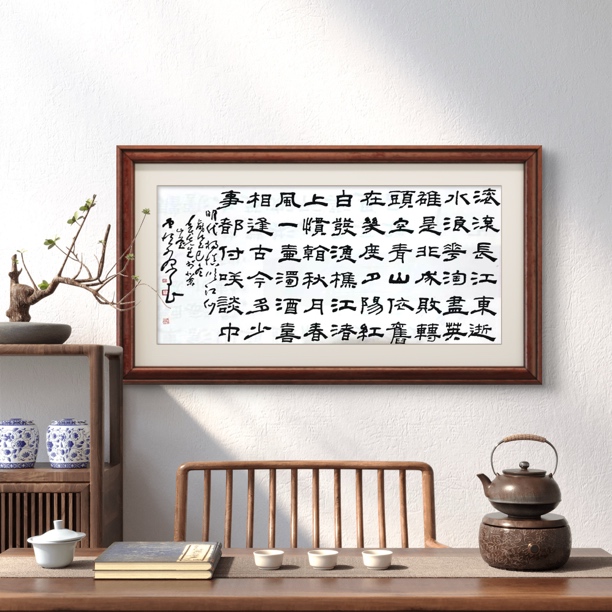 滚滚長江東逝
水浪花淘盡英
雄是非成敗轉
頭空青山依舊
在幾度夕陽紅
白發漁樵江渚
上慣看秋月春
風一壺濁酒喜
相逢古今多少
事都付咲談中
明代楊慎臨江仙